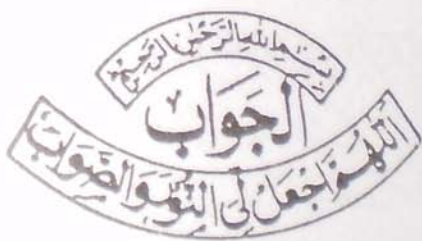 بِسْمِ اللهِ الرَّحْمٰنِ الرَّحِيْمِ
الْجَوَابُ
اَللّٰهُمَّ اجْعَلْ لِیَ النُّوْرَ وَالصَّوَابَ